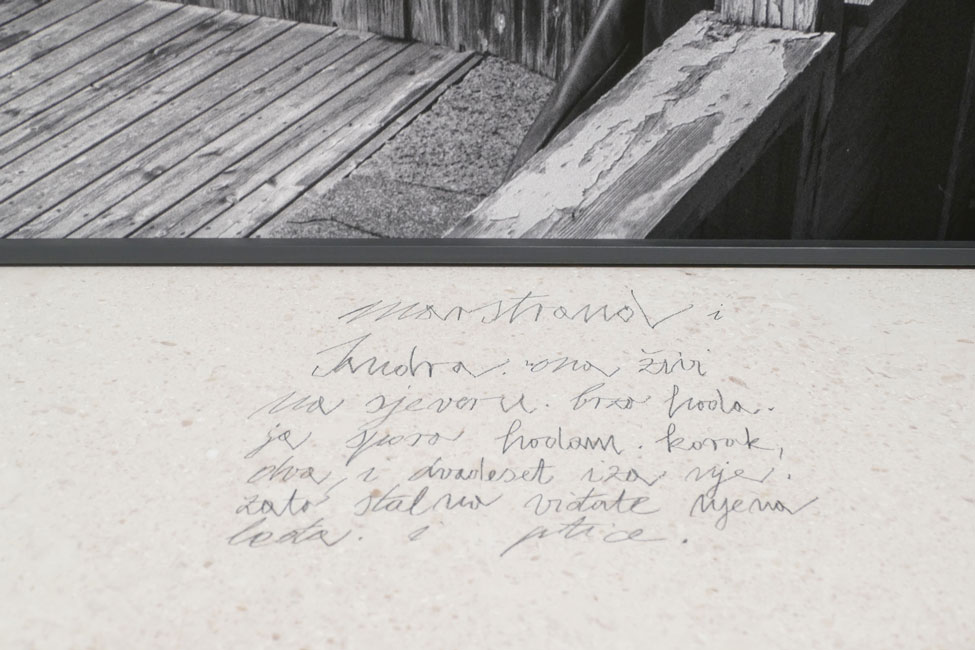 marstrand i
Andra. ona živi
na sjeveru. brzo hoda.
ja sporo hodam. korak,
dva, i dvadeset iza nje.
zato stalno viđate njena
leđa. i ptice.